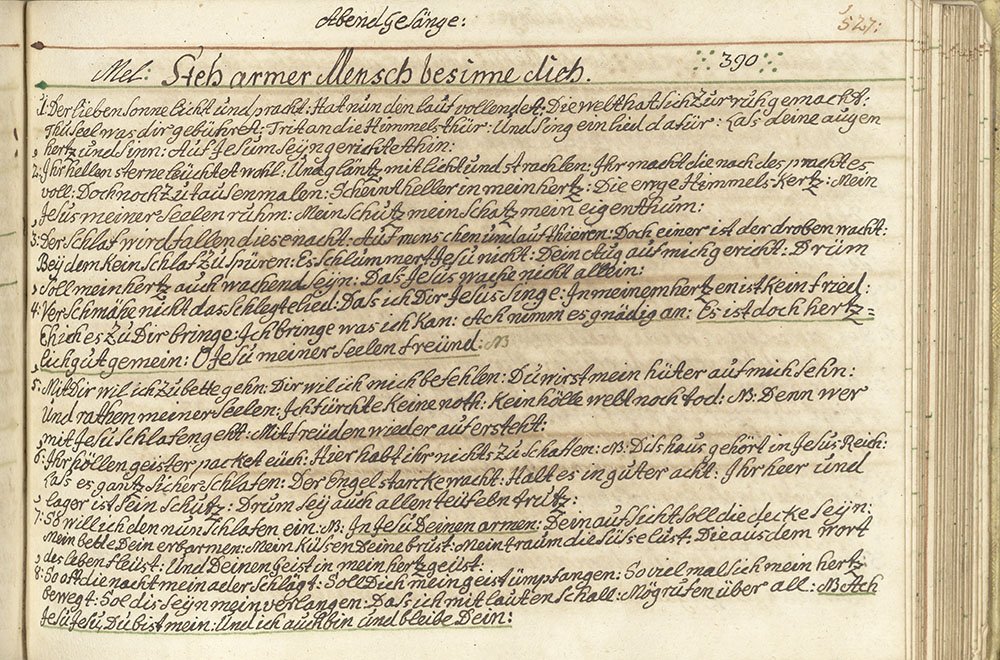 AbendGesänge:
527:
Mel: Steh armer Mensch besinne dich. 390
1: Der lieben Sonne licht und pracht: Hat nun den lauf vollendet: Die welt hat sich zur ruh gemacht:
Thu Seel was dir gebühret: Trit an die Himmels thür: Und Sing ein lied dafür: Las deine augen
hertz und Sinn: Auf Jesum Seyn gerichtet hin:
2: Ihr hellen sterne leüchtet wohl: Und gläntzt mit licht und strachlen: Ihr macht die nach des pracht es
voll: Doch noch zu tausenmalen: Scheint heller in mein hertz: Die ewge Himmels-Kertz: Mein
Jesus meiner Seelen rühm: Mein Schutz mein Schatz mein eigenthum:
3: Der Schlaf wird fallen diese nacht: Auf menschen und auf thieren: Doch einer ist der droben wacht:
Bey dem kein Schlaf zu spüren: Es Schlummert Jesu nicht: Dein Aug auf mich gericht: Drüm
Soll mein hertz auch wachend Seyn: Das Jesus wache nicht allein:
4: Verschmähe nicht das Schlegte lied: Das ich Dir Jesu Singe: In meinem hertzen ist kein fried:
Eh ich es zu Dir bringe: Ich bringe was ich kan: Ach nimm es gnädig an: Es ist doch hertz=
lich gut gemein: O Jesu meiner Seelen freünd: NB
5: Mit Dir wil ich zu bette gehn: Dir wil ich mich befehlen: Du wirst mein hüter auf mich sehn:
Und rathen meiner Seelen: Ich fürchte keine noth: Kein hölle welt noch tod: NB: Denn wer
mit Jesu Schlafen geht: Mit freüden wieder aufersteht:
6: Ihr höllen geister packet eüch: Hier habt ihr nichts zu Schaffen: NB: Dis haus gehört in Jesus Reich:
Las es gantz Sicher Schlafen: Der Engel starcke wacht: Halt es in guter acht: Ihr heer und
lager ist Sein Schutz: Drum Sey auch allen teüfeln trutz:
7: So will ich den nun Schlafen ein: NB: In Jesu Deinen armen: Dein aufsicht Soll die decke Seyn:
Mein bette Dein erbarmen: Mein Küsen Deine brust: Mein traum die Süse lust: Die aus dem wort
des leben fleüst: Und Deinen Geist in mein hertz geüst:
8: So oft die nacht mein ader Schlägt: Soll Dich mein geist ümpfangen: So viel mal Sich mein hertz
bewegt: Sol dis Seyn mein verlangen: Das ich mit lauten Schall: Mög rufen über all: NB Ach
Jesu Jesu, Du bist mein: Und ich auch bin und bleibe Dein: